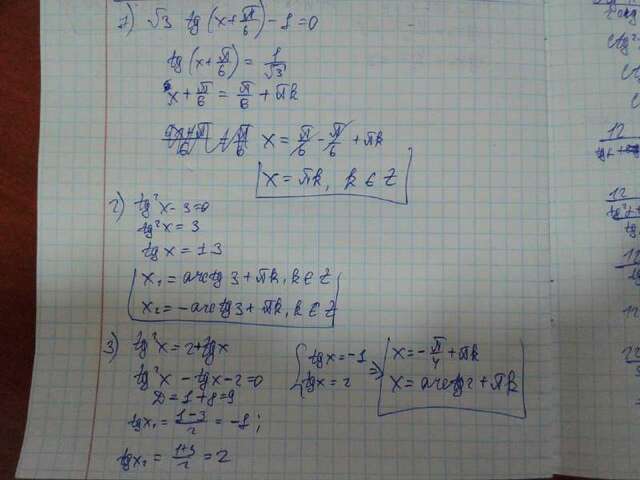 1) √3 tg(x+π/6) - 1 = 0
tg(x+π/6) = 1/√3
x + π/6 = π/6 + πk
x = π/6 - π/6 + πk
x = πk, k ∈ Z
2) tg²x - 3 = 0
tg²x = 3
tg x = ±3
x₁ = arctg 3 + πk, k ∈ Z
x₂ = -arctg 3 + πk, k ∈ Z
3) tg²x = 2 + tgx
tg²x - tgx - 2 = 0
D = 1 + 8 = 9
tgx₁ = (1-3)/2 = -1;
tgx₂ = (1+3)/2 = 2
tgx = -1
tgx = 2
=>
x = -π/4 + πk
x = arctg2 + πk
12
12
12